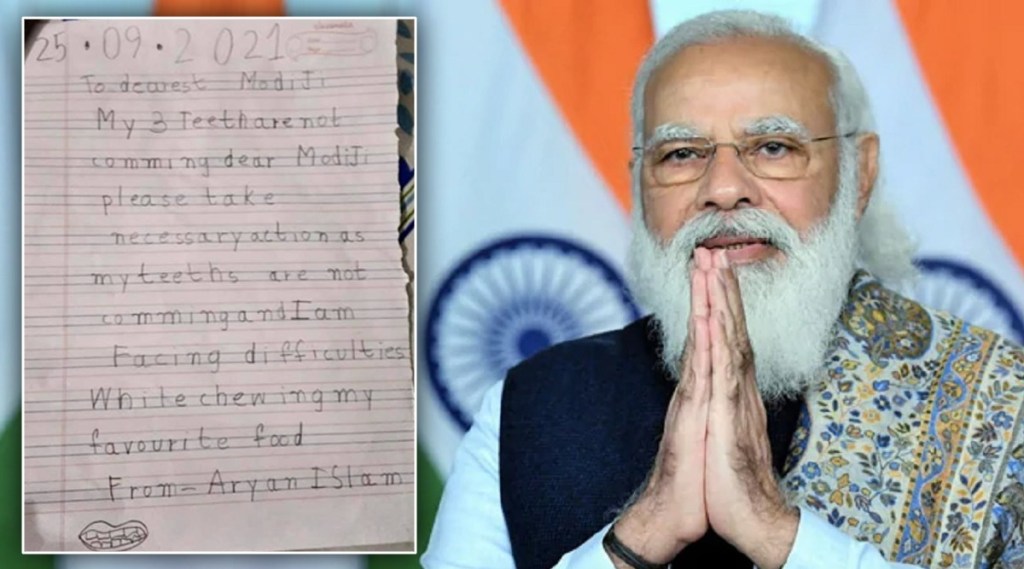 25.09.2021
To dearest ModiJi
My 3 Teeth are not
comming dear ModiJi
please take
necessary action as
my teeths are not
comming and I am
Facing difficulties
While chewing my
favourite food
From - Aryan ISlam